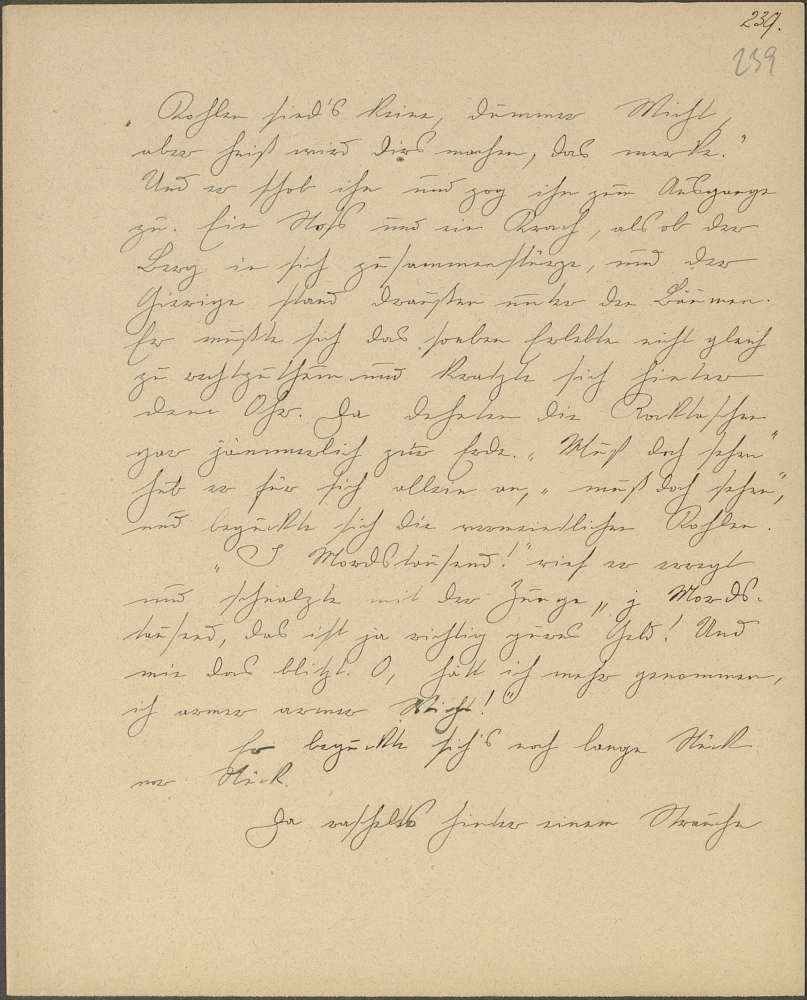 239.
239
„Kohlen sind's keine, dummer Wicht,
aber heiß wird dirs machen, das merke."
Und er schob ihn und zog ihn zum Ausgange
zu. Ein Stoß und ein Krach, als ob der
Berg in sich zusammenstürze, und der
Gierige stand draußen unter den Bäumen.
Er mußte sich das soeben Erlebte nicht gleich
zu rechtzuthun und kratzte sich hinter
dem Ohr. Da dehnten die Rocktaschen
gar jämmerlich zur Erde. „Muß doch sehen"
hub er für sich allein an, „muß doch sehen",
und beguckte sich die vermeintlichen Kohlen.
„I Mordstausend!" rief er erregt
und schnalzte mit der Zunge „j Mords-
tausend, das ist ja richtig pures Geld! Und
wie das blitzt. O, hätt ich mehr genommen,
ich armer armer Wicht!"
Er beguckte sich's noch lange Stück
vor Stück.
Da raschelts hinter einem Strauche